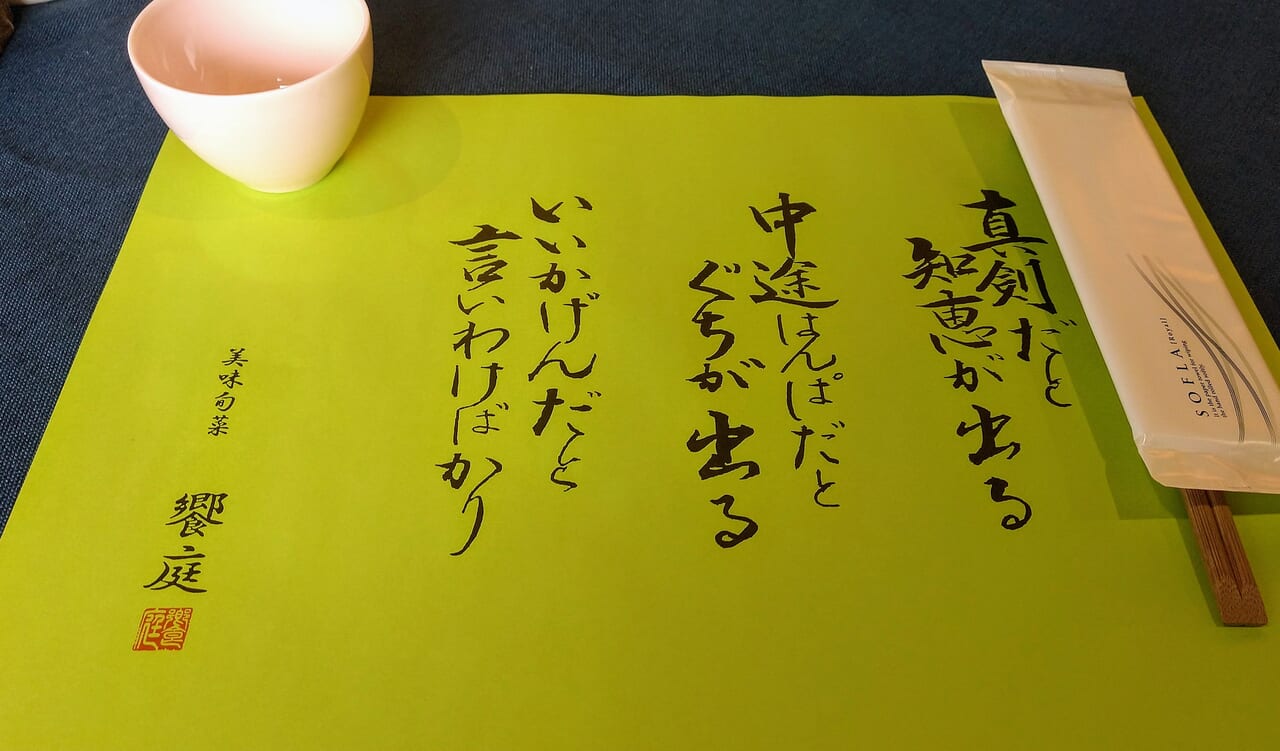 真剣だと
知恵が出る
中途はんぱだと
ぐちが出る
いいかげんだと
言いわけばかり
美味旬菜
饗庭
饗庭
SOFLA [Royal]